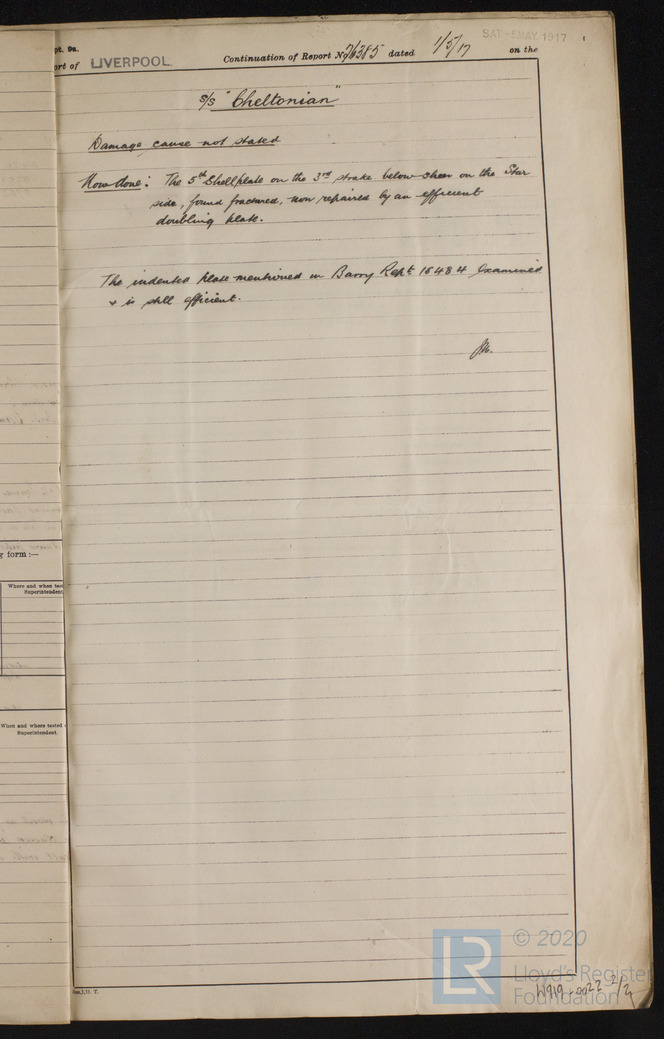 SAT - 5 MAY. 1917
pt. 9a.
ort of LIVERPOOL Continuation of Report No 76385 dated 1/5/17 on the
s/s "Cheltonian"
Damage cause not stated
Now done: The 5th Shell plate on the 3rd strake below sheer on the Star
side, found fractured, now repaired by an efficient
doubling plate.
The indented plate mentioned in Barry Rept 16484 Examined
& is still efficient.
g form :—
Where and when test
Superintendent.
When and where tested
Superintendent.
© 2020
Lloyd's Register
Foundation
W919-0022 2/2